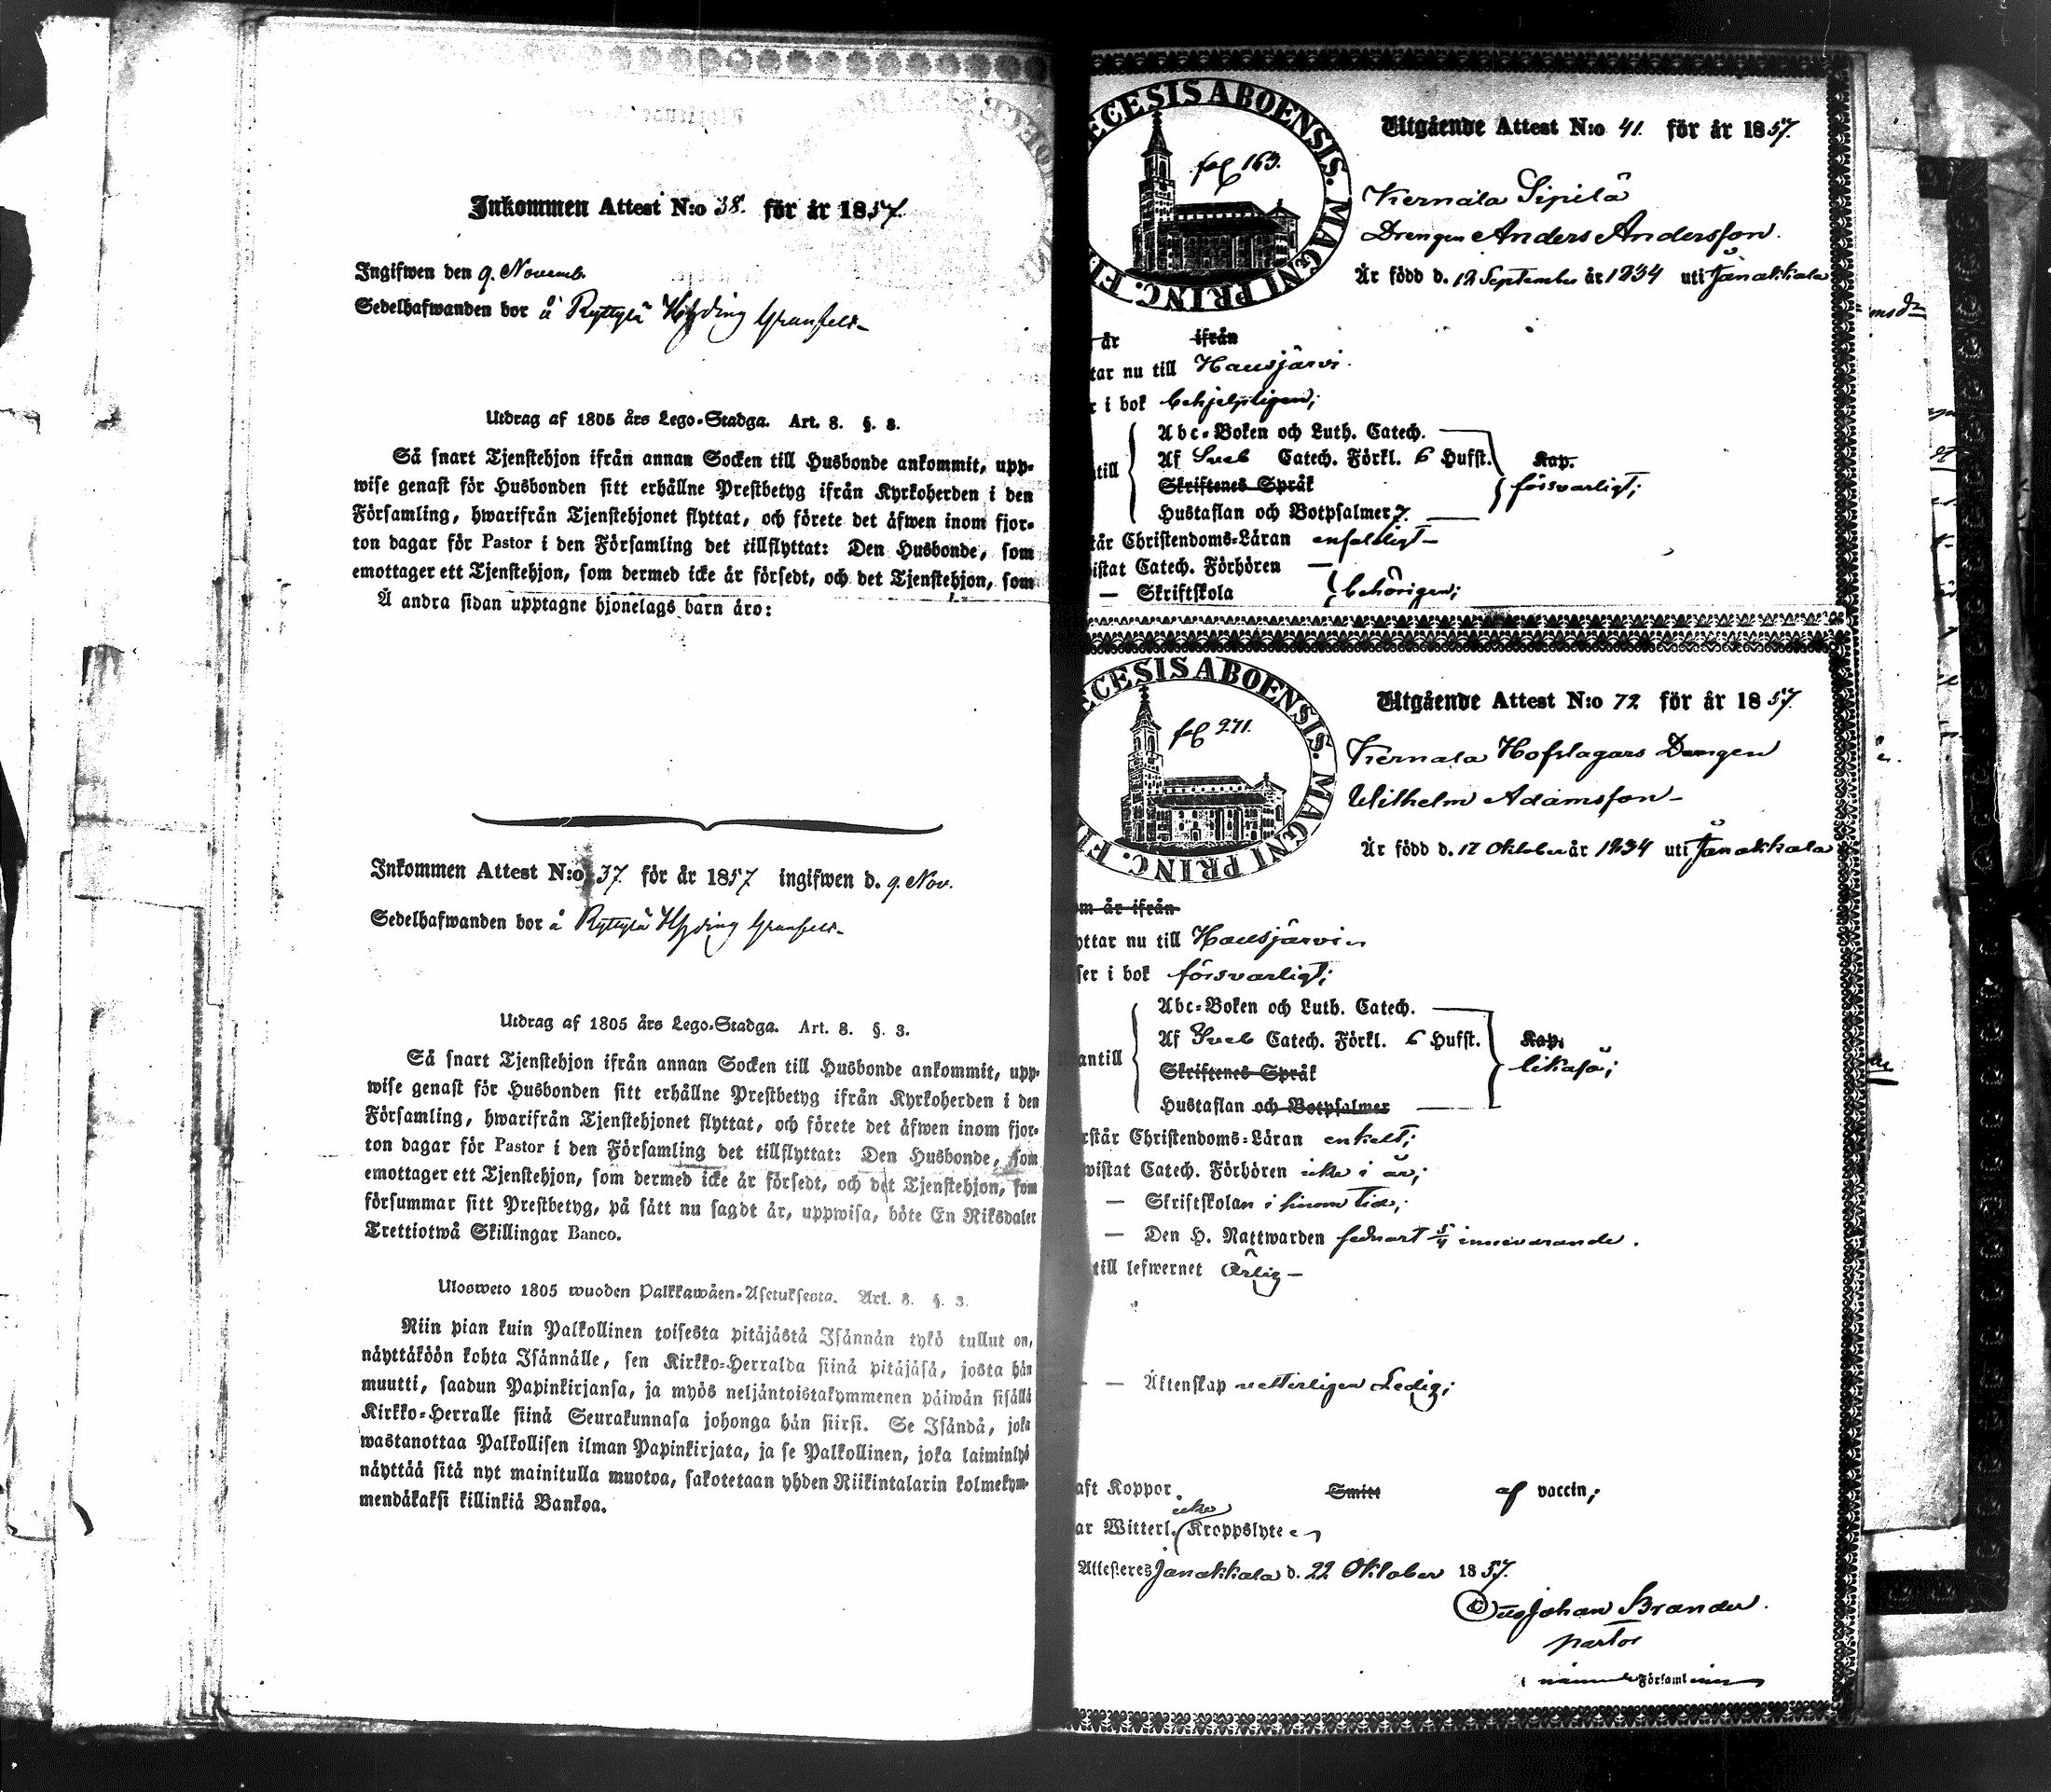 Inkommen Attest N:o 38. för år 1857.
Ingifwen den 9. Novemb.
Sedelhafwanden bor å Ryttylä
Utdrag af 1805 års Lego-Stadga. Art. 8. §. 3.
Så snart Tjenstehjon ifrån annan Socken till Husbonde ankommit, upp-
wise genast för Husbonden sitt erhållne Prestbetyg ifrån Kyrkoherden i den
Församling, hwarifrån Tjenstehjonet flyttat, och förete det äfwen inom fjor-
ton dagar för Pastor i den Församling det tillflyttat: Den Husbonde, som
emottager ett Tjenstehjon, som dermed icke är försedt, och det Tjenstehjon, som
Å andra sidan upptagne hjonelags barn äro:
Inkommen Attest N:o 37. för år 1857 ingifwen d. 9. Nov.
Sedelhafwanden bor å Ryttylä
Utdrag af 1805 års Lego-Stadga. Art. 8. §. 3.
Så snart Tjenstehjon ifrån annan Socken till Husbonde ankommit, upp-
wise genast för Husbonden sitt erhållne Prestbetyg ifrån Kyrkoherden i den
Församling, hwarifrån Tjenstehjonet flyttat, och förete det äfwen inom fjor-
ton dagar för Pastor i den Församling det tillflyttat: Den Husbonde, som
emottager ett Tjenstehjon, som dermed icke är försedt, och det Tjenstehjon, som
försummar sitt Prestbetyg, på sätt nu sagdt är, uppwisa, böte En Riksdaler
Trettiotwå Skillingar Banco.
Ulosweto 1805 wuoden Palkkawäen-Asetuksesta. Art. 8. §. 3.
Niin pian kuin Palkollinen toisesta pitäjästä Isännän tykö tullut on,
näyttäköön kohta Isännälle, sen Kirkko-Herralda siinä pitäjäsä, josta hän
muutti, saadun Papinkirjansa, ja myös neljäntoistakymmenen päiwän sisällä
Kirkko-Herralle siinä Seurakunnasa johonga hän siirsi. Se Isändä, joka
wastanottaa Palkollisen ilman Papinkirjata, ja se Palkollinen, joka laiminlyö
näyttää sitä nyt mainitulla muotoa, sakotetaan yhden Riikintalarin kolmekym-
mendäkaksi killinkiä Bankoa.
ECESIS ABOENSIS. MAGNI PRINC. F
fol 163.
Utgående Attest N:o 41. för år 1857.
Kernala Sipilä
Drengen Anders Andersson.
Är född d. 12 September år 1834 uti Janakkala
är ifrån
tar nu till Hausjärvi.
r i bok behjelpligen;
Abc-Boken och Luth. Catech.
ntill Af Sveb Catech. Förkl. 6 Hufst. Kap.
Skriftenes Språk försvarligt;
Hustaflan och Botpsalmer 7.
tår Christendoms-Läran enfaldigt
istat Catech. Förhören
— Skriftskola behörigen;
ECESIS ABOENSIS. MAGNI PRINC. F
fol 271.
Utgående Attest N:o 72 för år 1857.
Kernala Hofslagars Drengen
Wilhelm Adamsson
Är född d. 17 Oktober år 1834 uti Janakkala
om är ifrån
yttar nu till Hausjärvi
ser i bok försvarligt;
Abc-Boken och Luth. Catech.
antill Af Sveb Catech. Förkl. 6 Hufst. Kap.
Skriftenes Språk likaså;
Hustaflan och Botpsalmer
rstår Christendoms-Läran enkelt;
wistat Catech. Förhören icke i år;
— Skriftskolan i sinom tid;
— Den H. Nattwarden sednast 5/4 innevarande.
till lefwernet Ärlig
— — Äktenskap vetterligen Ledig;
aft Koppor Smitt af vaccin;
icke
ar Witterl. Kroppslyte
Attesteres Janakkala d. 22 Oktober 1857.
Johan Brander.
pastor
Församl